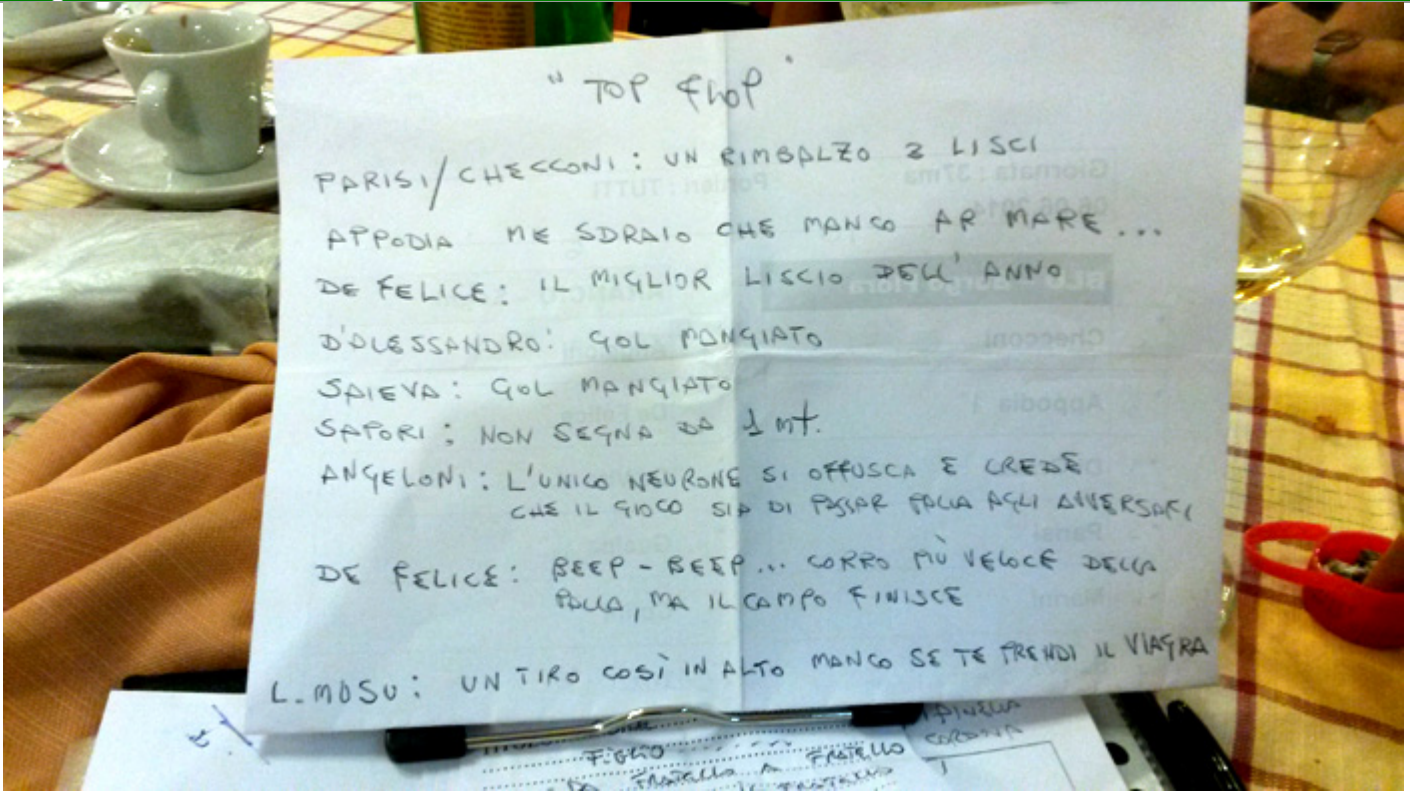 " TOP FLOP "
PARISI/CHECCONI: UN RIMBALZO 2 LISCI
APPODIA ME SDRAIO CHE MANCO AR MARE...
DE FELICE: IL MIGLIOR LISCIO DELL'ANNO
D'ALESSANDRO: GOL MANGIATO
SAIEVA: GOL MANGIATO
SAPORI: NON SEGNA DA 1 mt.
ANGELONI: L'UNICO NEURONE SI OFFUSCA E CREDE
CHE IL GIOCO SIA DI PASSAR PALLA AGLI AVVERSARI
DE FELICE: BEEP-BEEP... CORRO PIÙ VELOCE DELLA
PALLA, MA IL CAMPO FINISCE
L. MOSU: UN TIRO COSÌ IN ALTO MANCO SE TE PRENDI IL VIAGRA
FIGLIO
DA FRATELLO A FRATELLO
Giornata : 37ma
Portieri : TUTTI
06.06.2014
BLU Borgo Flora
Checconi
Appodia
De Felice
Parisi
Nanni